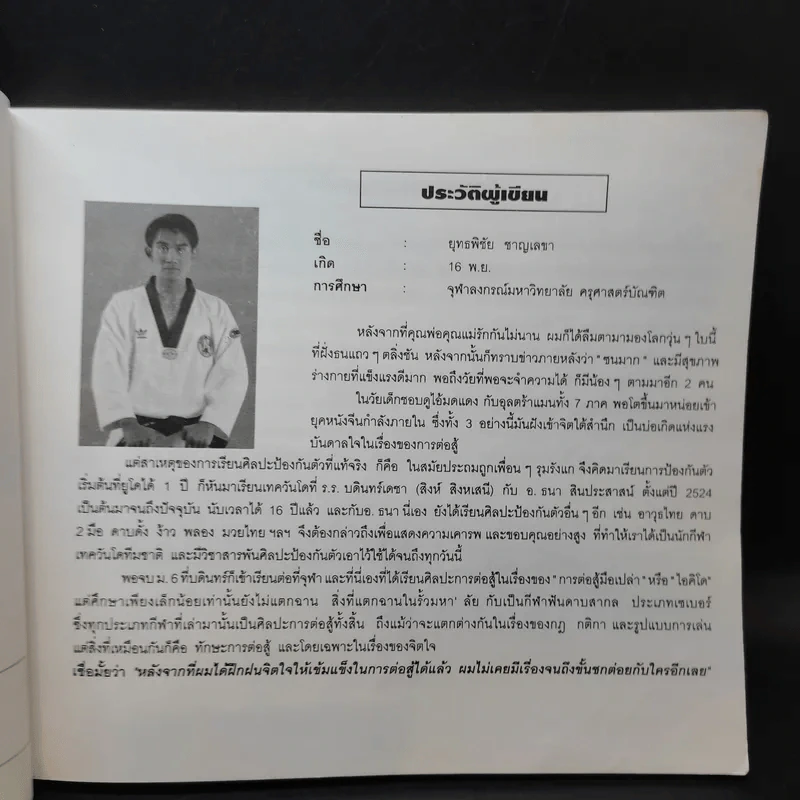 ประวัติผู้เขียน
ชื่อ : ยุทธพิชัย ชาญเลขา
เกิด : 16 พ.ย.
การศึกษา : จุฬาลงกรณ์มหาวิทยาลัย ครุศาสตร์บัณฑิต
หลังจากที่คุณพ่อคุณแม่รักกันไม่นาน ผมก็ได้ลืมตามามองโลกวุ่น ๆ ใบนี้
ที่ฝั่งธนแถว ๆ ตลิ่งชัน หลังจากนั้นก็ทราบข่าวภายหลังว่า "ซนมาก" และมีสุขภาพ
ร่างกายที่แข็งแรงดีมาก พอถึงวัยที่พอจะจำความได้ ก็มีน้อง ๆ ตามมาอีก 2 คน
ในวัยเด็กชอบดูไอ้มดแดง กับอุลตร้าแมนทั้ง 7 ภาค พอโตขึ้นมาหน่อยเข้า
ยุคหนังจีนกำลังภายใน ซึ่งทั้ง 3 อย่างนี้มันฝังเข้าจิตใต้สำนึก เป็นบ่อเกิดแห่งแรง
บันดาลใจในเรื่องของการต่อสู้
แต่สาเหตุของการเรียนศิลปะป้องกันตัวที่แท้จริง ก็คือ ในสมัยประถมถูกเพื่อน ๆ รุมรังแก จึงคิดมาเรียนการป้องกันตัว
เริ่มต้นที่ยูโดได้ 1 ปี ก็หันมาเรียนเทควันโดที่ ร.ร. บดินทร์เดชา (สิงห์ สิงหเสนี) กับ อ. ธนา สินประสาสน์ ตั้งแต่ปี 2524
เป็นต้นมาจนถึงปัจจุบัน นับเวลาได้ 16 ปีแล้ว และกับอ. ธนา นี่เอง ยังได้เรียนศิลปะป้องกันตัวอื่น ๆ อีก เช่น อาวุธไทย ดาบ
2 มือ ดาบดั้ง ง้าว พลอง มวยไทย ฯลฯ จึงต้องกล่าวถึงเพื่อแสดงความเคารพ และขอบคุณอย่างสูง ที่ทำให้เราได้เป็นนักกีฬา
เทควันโดทีมชาติ และมีวิชาสารพันศิลปะป้องกันตัวเอาไว้ใช้ได้จนถึงทุกวันนี้
พอจบ ม. 6 ที่บดินทร์ก็เข้าเรียนต่อที่จุฬา และที่นี่เองที่ได้เรียนศิลปะการต่อสู้ในเรื่องของ "การต่อสู้มือเปล่า" หรือ "ไอคิโด"
แต่ศึกษาเพียงเล็กน้อยเท่านั้นยังไม่แตกฉาน สิ่งที่แตกฉานในรั้วมหา' ลัย กับเป็นกีฬาฟันดาบสากล ประเภทเซเบอร์
ซึ่งทุกประเภทกีฬาที่เล่ามานั้นเป็นศิลปะการต่อสู้ทั้งสิ้น ถึงแม้ว่าจะแตกต่างกันในเรื่องของกฎ กติกา และรูปแบบการเล่น
แต่สิ่งที่เหมือนกันก็คือ ทักษะการต่อสู้ และโดยเฉพาะในเรื่องของจิตใจ
เชื่อมั้ยว่า "หลังจากที่ผมได้ฝึกฝนจิตใจให้เข้มแข็งในการต่อสู้ได้แล้ว ผมไม่เคยมีเรื่องจนถึงขั้นชกต่อยกับใครอีกเลย"